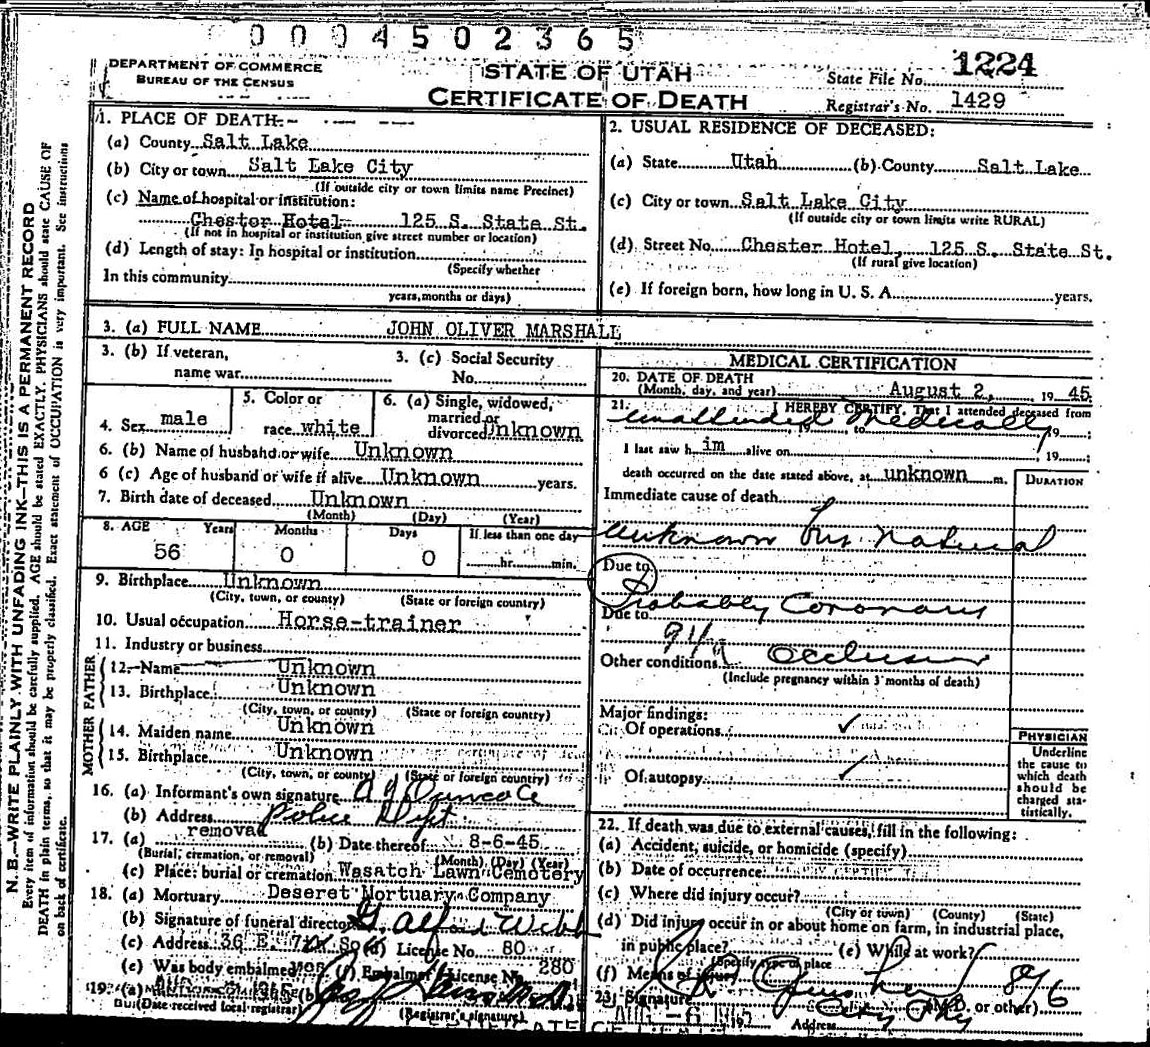 0 0 0 4 5 0 2 3 6 5
DEPARTMENT OF COMMERCE
BUREAU OF THE CENSUS
STATE OF UTAH
CERTIFICATE OF DEATH
State File No. 1224
Registrar's No. 1429
1. PLACE OF DEATH:
(a) County Salt Lake
(b) City or town Salt Lake City
(If outside city or town limits name Precinct)
(c) Name of hospital or institution:
Chester Hotel 125 S. State St.
(If not in hospital or institution give street number or location)
(d) Length of stay: In hospital or institution
(Specify whether
In this community
years, months or days)
2. USUAL RESIDENCE OF DECEASED:
(a) State Utah (b) County Salt Lake
(c) City or town Salt Lake City
(If outside city or town limits write RURAL)
(d) Street No. Chester Hotel, 125 S. State St.
(If rural give location)
(e) If foreign born, how long in U. S. A. years.
3. (a) FULL NAME JOHN OLIVER MARSHALL
3. (b) If veteran,
name war
3. (c) Social Security
No.
4. Sex male
5. Color or
race white
6. (a) Single, widowed,
married or
divorced Unknown
6. (b) Name of husband or wife Unknown
6 (c) Age of husband or wife if alive Unknown years.
7. Birth date of deceased Unknown
(Month) (Day) (Year)
8. AGE Years Months Days If less than one day
56 0 0 hr. min.
9. Birthplace Unknown
(City, town, or county) (State or foreign country)
10. Usual occupation Horse-trainer
11. Industry or business
FATHER
12. Name Unknown
13. Birthplace Unknown
(City, town, or county) (State or foreign country)
MOTHER
14. Maiden name Unknown
15. Birthplace Unknown
(City, town, or county) (State or foreign country)
16. (a) Informant's own signature
(b) Address Police Dept.
17. (a) removal (b) Date thereof 8-6-45
(Burial, cremation, or removal) (Month) (Day) (Year)
(c) Place: burial or cremation Wasatch Lawn Cemetery
18. (a) Mortuary Deseret Mortuary Company
(b) Signature of funeral director G. Alford Webb
(c) Address 36 E. 7th So (d) License No. 80
(e) Was body embalmed yes (f) Embalmer's License No. 280
19. (a) (b)
(Date received local registrar) (Registrar's signature)
MEDICAL CERTIFICATION
20. DATE OF DEATH
(Month, day, and year) August 2, 19 45
21. I HEREBY CERTIFY, That I attended deceased from
unattended Medically
, 19 , to , 19 ;
I last saw h im alive on , 19 ;
death occurred on the date stated above, at unknown m.
DURATION
Immediate cause of death
Unknown but Natural
Due to
Probably Coronary
Due to
94 Occlusion
Other conditions
(Include pregnancy within 3 months of death)
Major findings:
Of operations ✓
Of autopsy ✓
PHYSICIAN
Underline
the cause to
which death
should be
charged sta-
tistically.
22. If death was due to external causes, fill in the following:
(a) Accident, suicide, or homicide (specify)
(b) Date of occurrence
(c) Where did injury occur?
(City or town) (County) (State)
(d) Did injury occur in or about home on farm, in industrial place,
in public place? (e) While at work?
(Specify type of place
(f) Means of injury
23. Signature (M.D. or other) 8/6
Address City Phy
AUG -6 1945
N.B.—WRITE PLAINLY WITH UNFADING INK—THIS IS A PERMANENT RECORD
Every item of information should be carefully supplied. AGE should be stated EXACTLY. PHYSICIANS should state CAUSE OF
DEATH in plain terms, so that it may be properly classified. Exact statement of OCCUPATION is very important. See instructions
on back of certificate.